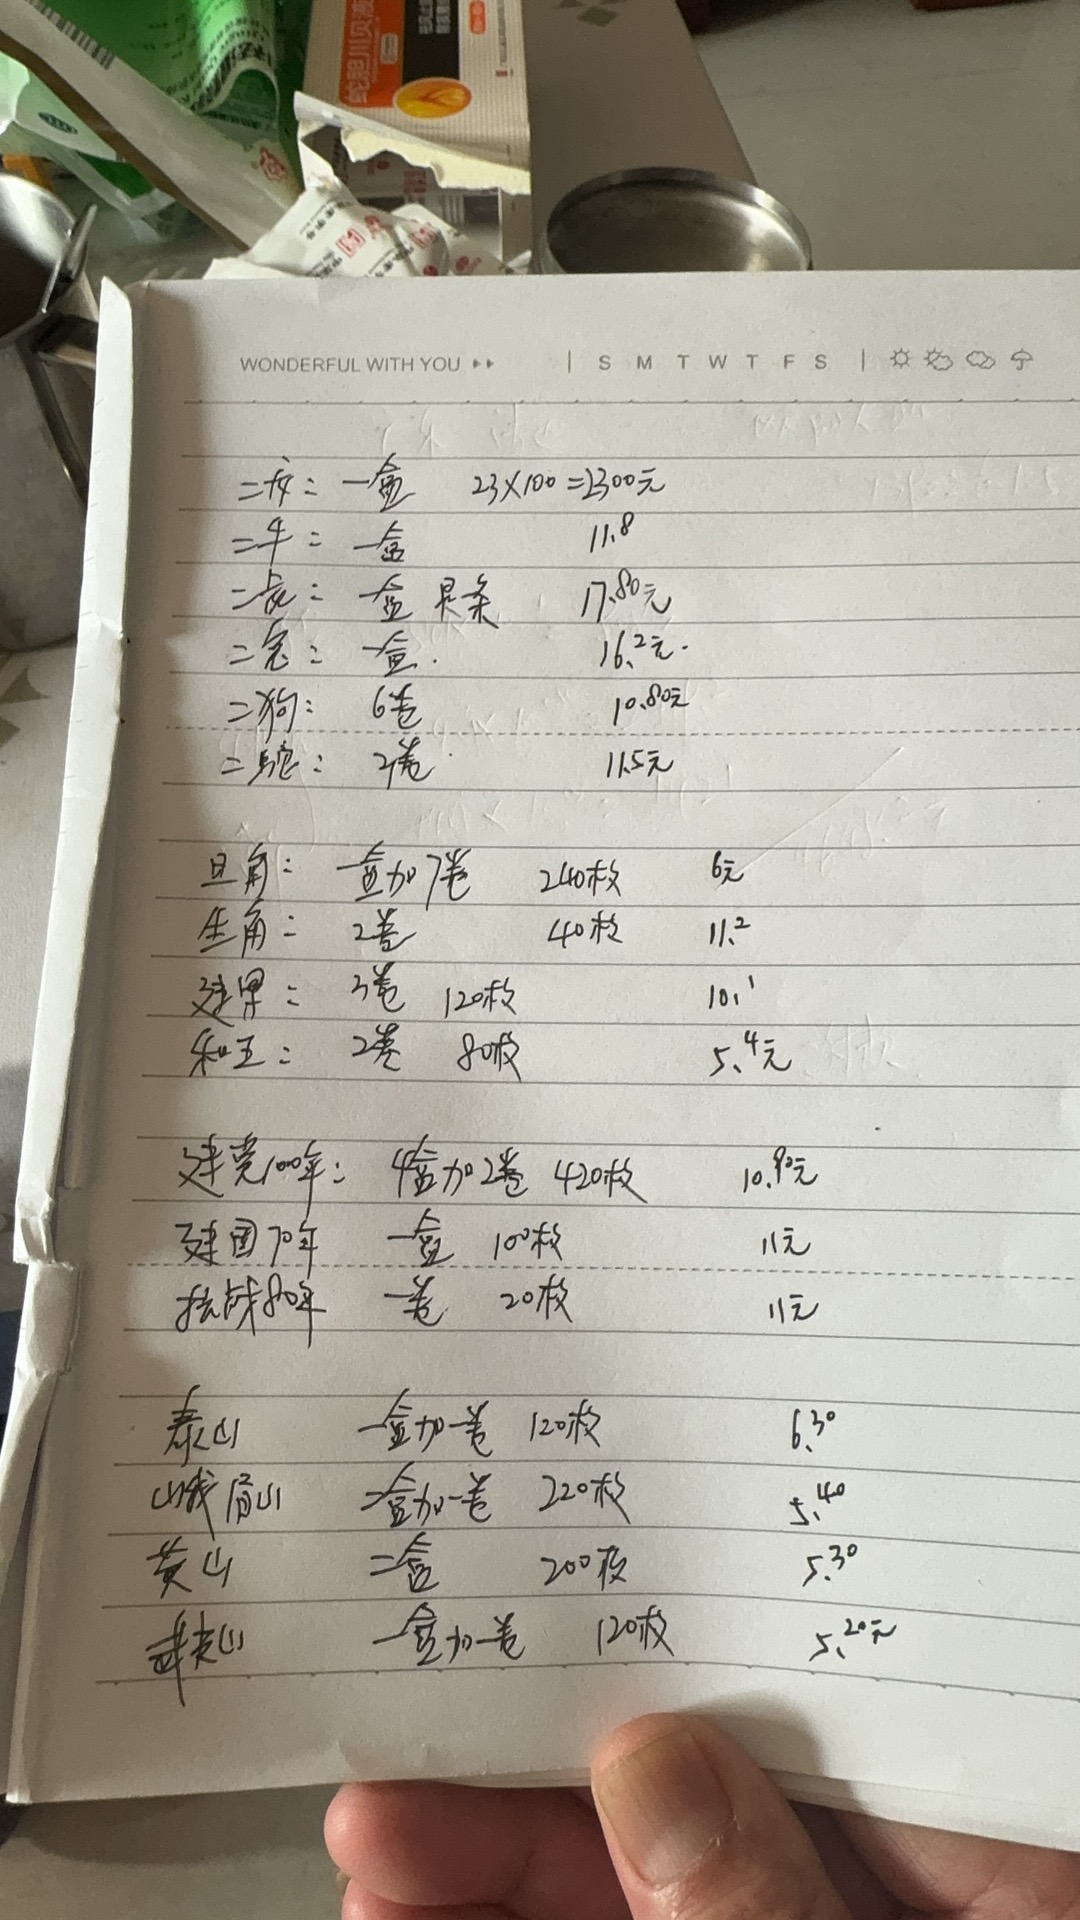 蛇胆川贝液
WONDERFUL WITH YOU ▸▸ | S M T W T F S |
二虎：一盒 23×100=2300元
二牛：一盒 11.8
二龙：一盒 只条 17.80元
二兔：一盒. 16.2元.
二狗：6卷 10.80元
二蛇：2卷. 11.5元
旦角：一盒加7卷 240枚 6元
生角：2卷 40枚 11.2
建军：3卷 120枚 10.1
和五：2卷 80枚 5.4元
建党100年：4盒加2卷 420枚 10.90元
建国70年 一盒 100枚 11元
抗战80年 一卷 20枚 11元
泰山 一盒加一卷 120枚 6.30
峨眉山 二盒加一卷 220枚 5.40
黄山 二盒 200枚 5.30
武夷山 一盒加一卷 120枚 5.20元